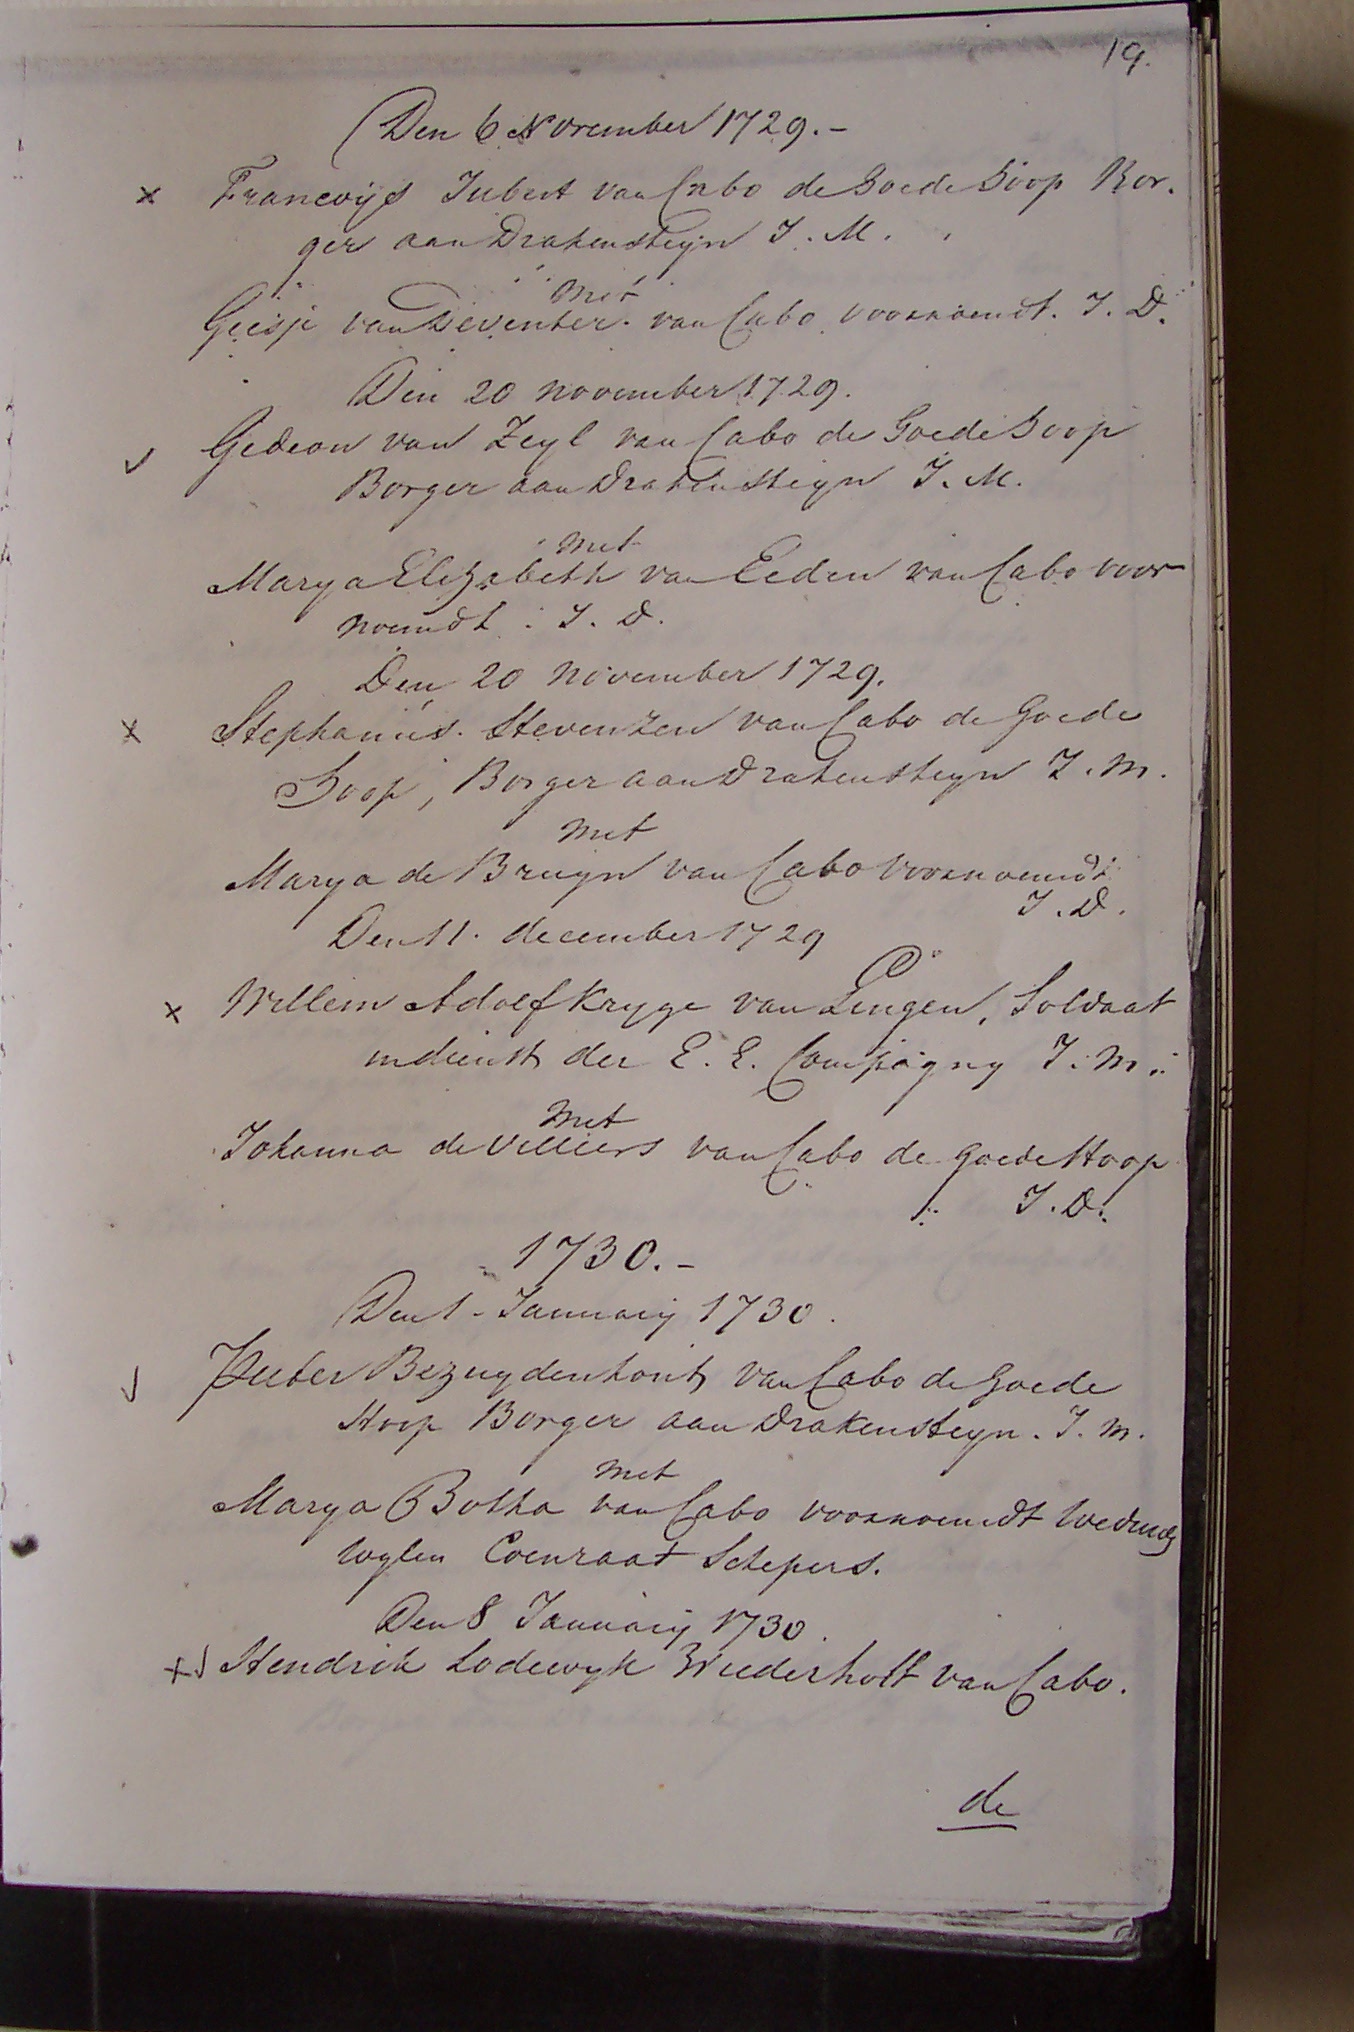 19.
Den 6 November 1729.-
x Francoijs Jubert van Cabo de Goede Hoop Bor.
ger aan Drakensteijn J. M.
Met
Geesje van Deventer. van Cabo voornoemdt. J. D.
Den 20 november 1729.
✓ Gedeon van Zeyl van Cabo de Goede Hoop
Borger aan Drakensteijn J. M.
met
Marya Elizabeth van Eeden van Cabo voor
noemdt. J. D.
Den 20 November 1729.
x Stephanus. Stevenzen van Cabo de Goede
Hoop, Borger aan Drakensteyn J. M.
Met
Marya de Bruyn van Cabo voornoemdt
J. D.
Den 11. december 1729
x Willem Adolf Kryge van Lingen, Soldaat
in dienst der E. E. Compagny J. M.
Met
Johanna de Villiers van Cabo de goede Hoop
J. D.
1730.-
Den 1- January 1730.
✓ Pieter Bezuydenhout van Cabo de Goede
Hoop Borger aan Drakensteyn. J. M.
Met
Marya Botha van Cabo voornoemdt Weduwe
wylen Coenraat Schepers.
Den 8 January 1730.
x✓ Hendrik Lodewyk Wiederholt van Cabo.
de